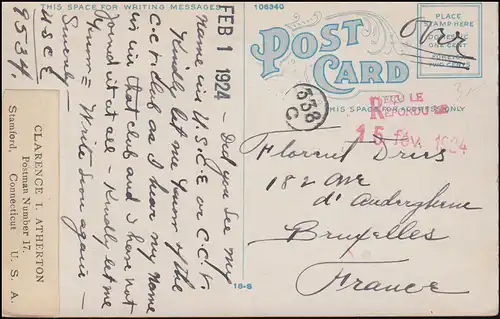 THIS SPACE FOR WRITING MESSAGES
FEB 1 1924
— Did you see my
Name in U.S.C.E or C.C.K.
Kindly let me know of the
C.C.K. Club as I hear my Name
is in that club and I have not
joined it at all — Kindly let me
Know = Write Soon again —
U.S.C.E
8534.
CLARENCE T. ATHERTON
Postman Number 17.
Stamford, Connecticut
U. S. A.
18-S
106340
POST CARD
THIS SPACE FOR ADDRESS ONLY
PLACE
STAMP HERE
DOMESTIC
ONE CENT
FOREIGN
TWO CENTS
338
C
REÇU LE
RÉPONDU LE
1924
Florent Dries
182 Ave
d'Auderghem
Bruxelles
France